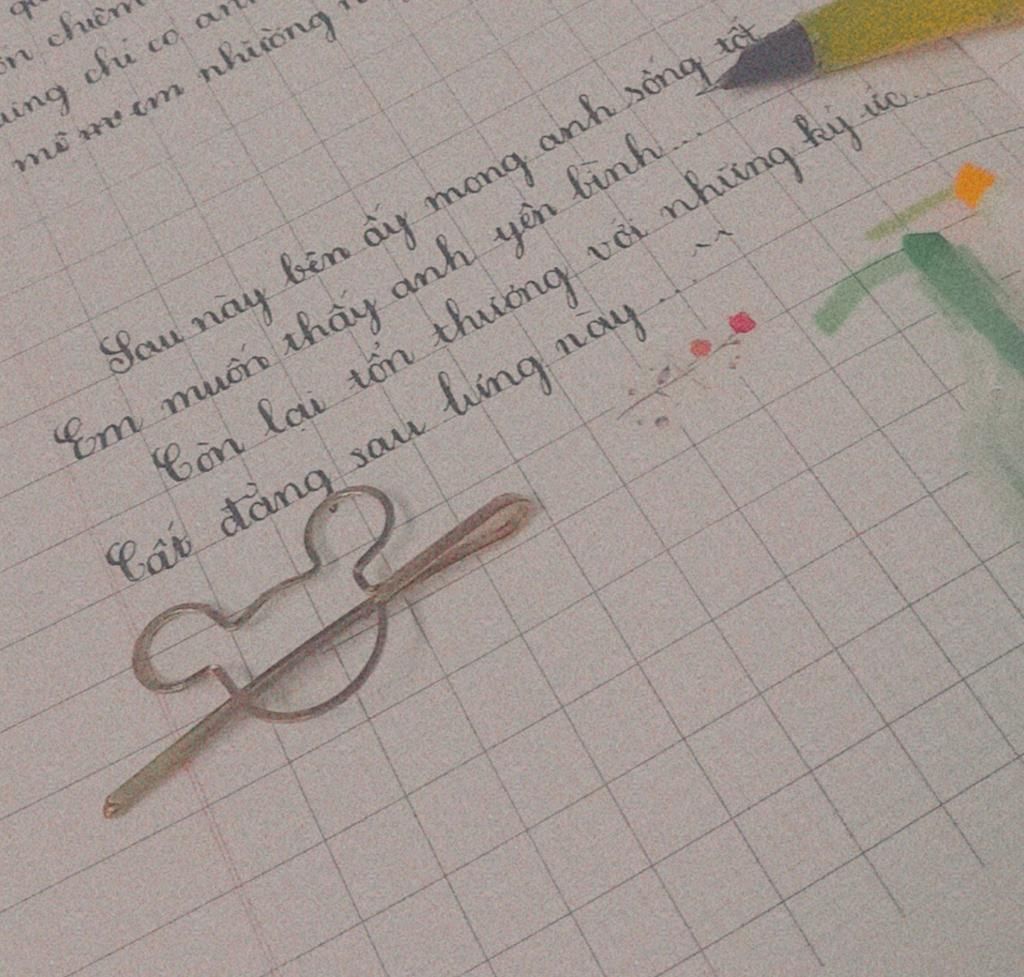 ôn chiêm
ung chỉ có anh
mê mơ em nhường
Sau này bên ấy mong anh sống tốt
Em muốn thấy anh yên bình...
Còn lại tổn thương với những ký ức...
Cất đằng sau lưng này...